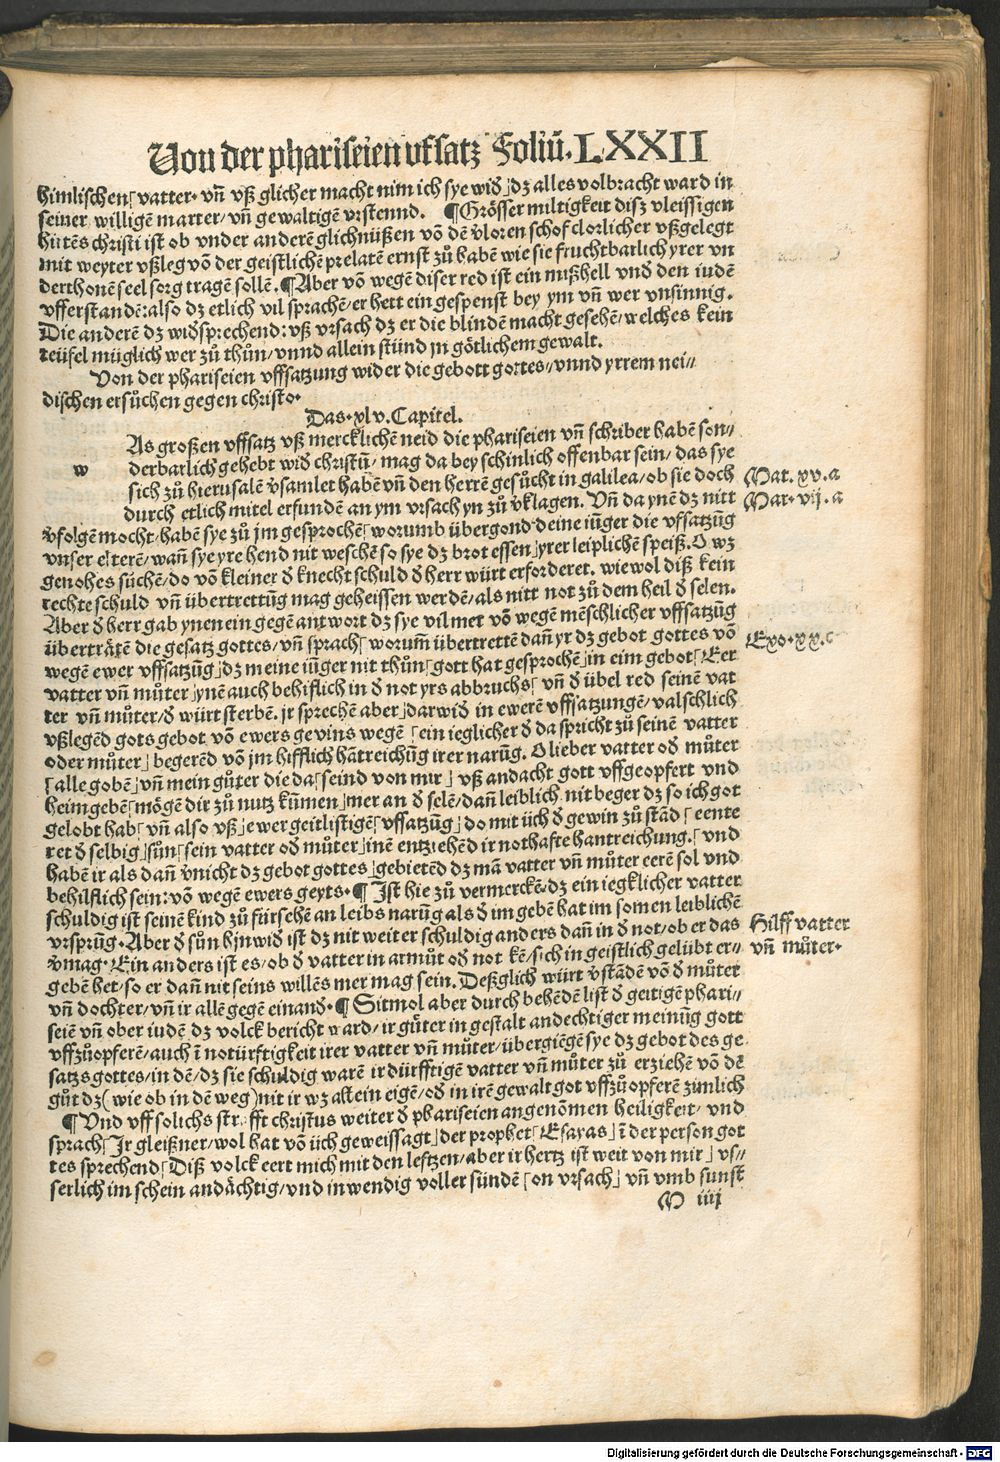 Von der phariseien vfsatz Foliū. LXXII
himlischen⌈vatter· vn̄ vß glicher macht nim ich sye wid⌋dz alles volbracht ward in
seiner willigē marter/vn̄ gewaltigē vrstennd. ¶Grösser miltigkeit disz vleissigen
hirtēs christi ist ob vnder anderē glichnüßen vō dē v̄loren schof clorlicher vßgelegt
mit weyter vßleg vō der geistlichē prelatē ernst zů habē wie sie fruchtbarlich yrer vn
derthonē seel sorg tragē sollē.¶Aber vō wegē diser red ist ein mißhell vnd den iudē
vfferstandē:also dz etlich vil sprachē/er hett ein gespenst bey ym vn̄ wer vnsinnig.
Die anderē dz widsprechend:vß vrsach dz er die blindē macht gesehē/welches kein
teüfel müglich wer zů thůn/vnnd allein stünd jn götlichem gewalt.
Von der phariseien vffsatzung wider die gebott gottes/vnnd yrrem nei⸗
dischen ersůchen gegen christo·
Das·xlv.Capitel.
w
As großen vffsatz vß mercklichē neid die phariseien vn̄ schriber habē son⸗
derbarlich gehebt wid christū/ mag da bey schinlich offenbar sein/ das sye
sich zů hierusalē v̄samlet habē vn̄ den herrē gesůcht in galilea/ob sie doch
durch etlich mitel erfundē an ym vrsach yn zů v̄klagen. Vn̄ da ynē dz nitt
v̄folgē mocht/habē sye zů jm gesprochē⌈worumb übergond deine iūger die vffsatzūg
vnser elterē/wan̄ sye yre hend nit weschē so sye dz brot essen⌋yrer leiplichē speiß.O wz
genohes süchē/do vō kleiner d knecht schuld d herr würt erforderet. wiewol diß kein
rechte schuld vn̄ übertrettūg mag geheissen werdē/als nitt not zů dem heil d selen.
Aber d herr gab ynen ein gegē antwort dz sye vil met vō wegē mēschlicher vffsatzūg
überträtē die gesatz gottes/vn̄ sprach⌈worum̄ übertrettē dan̄ yr dz gebot gottes vō
wegē ewer vffsatzūg⌋dz meine iūger nit thůn⌈gott hat gesprochē⌋in eim gebot⌈Eer
vatter vn̄ můter⌋ynē auch behiflich in d not yrs abbruchs⌈ vn̄ d übel red seinē vat
ter vn̄ můter/d würt sterbē. jr sprechē aber⌋darwid in ewerē vffsatzungē/valschlich
vßlegēd gots gebot vō ewers gevins wegē ⌈ein ieglicher d da spricht zů seinē vatter
oder můter⌋begerēd vō jm hifflich hātreichūg irer narūg. O lieber vatter od můter
⌈alle gobē⌋vn̄ mein gůter die da⌈seind von mir⌋ vß andacht gott vffgeopfert vnd
heimgebē⌈mögē dir zů nutz kūmen⌋mer an d selē/dan̄ leiblich nit beger dz so ich got
gelobt hab⌈vn̄ also vß⌋ewer geitlistigē⌈vffsatzūg⌋do mit üch d gewin zů stād⌈eente
ret d selbig⌋sůn⌈sein vatter od můter⌋inē entziehēd ir nothafte hantreichung.⌈vnd
habē ir als dan̄ v̄nicht dz gebot gottes⌋gebietēd dz mā vatter vn̄ můter eerē sol vnd
behilflich sein:vō wegē ewers geyts·¶Ist hie zů vermerckē/dz ein iegklicher vatter
schuldig ist seinē kind zů fürsehē an leibs narūg als d im gebē hat im somen leiblichē
vrsprūg·Aber d sůn hinwid ist dz nit weiter schuldig anders dan̄ in d not/ob er das
v̄mag·Ein anders ist es/ob d vatter in armůt od not kē/sich in geistlich gelübt er⸗
gebē het/so er dan̄ nit seins willēs mer mag sein. Deßglich würt v̄stādē vō d můter
vn̄ dochter/vn̄ ir allē gegē einand·¶Sitmol aber durch behēdē list d geitigē phari⸗
seiē vn̄ ober iudē dz volck bericht ward/ir gůter in gestalt andechtiger meinūg gott
vffzůopferē/auch ī notürftigkeit irer vatter vn̄ můter/übergiēgē sye dz gebot des ge
satzs gottes/in dē/dz sie schuldig warē ir dürfftigē vatter vn̄ můter zů erziehē vō dē
gůt dz(wie ob in dē weg)nit ir wz allein eigē/od in irē gewalt got vffzůopferē zimlich
¶Vnd vff solichs strofft christus weiter d phariseien angenōmen heiligkeit/ vnd
sprach⌈Ir gleißner/wol hat vō üch geweissagt⌋der prophet⌈Esayas⌋ī der person got
tes sprechend⌈Diß volck eert mich mit den leftzen/aber ir hertz ist weit von mir⌋ vs⸗
serlich im schein andächtig/vnd inwendig voller sündē⌈on vrsach⌋ vn̄ vmb sunst
M iiij
Mat. xv.a
Mar· vij.a
Exo·xx.c
Hilff vatter
vn̄ můter·
Digitalisierung gefördert durch die Deutsche Forschungsgemeinschaft - DFG